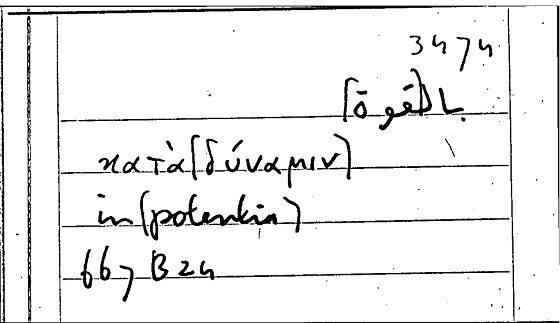 3474
بال(قوة)
κατὰ(δύναμιν)
in (potentia)
667 B 24